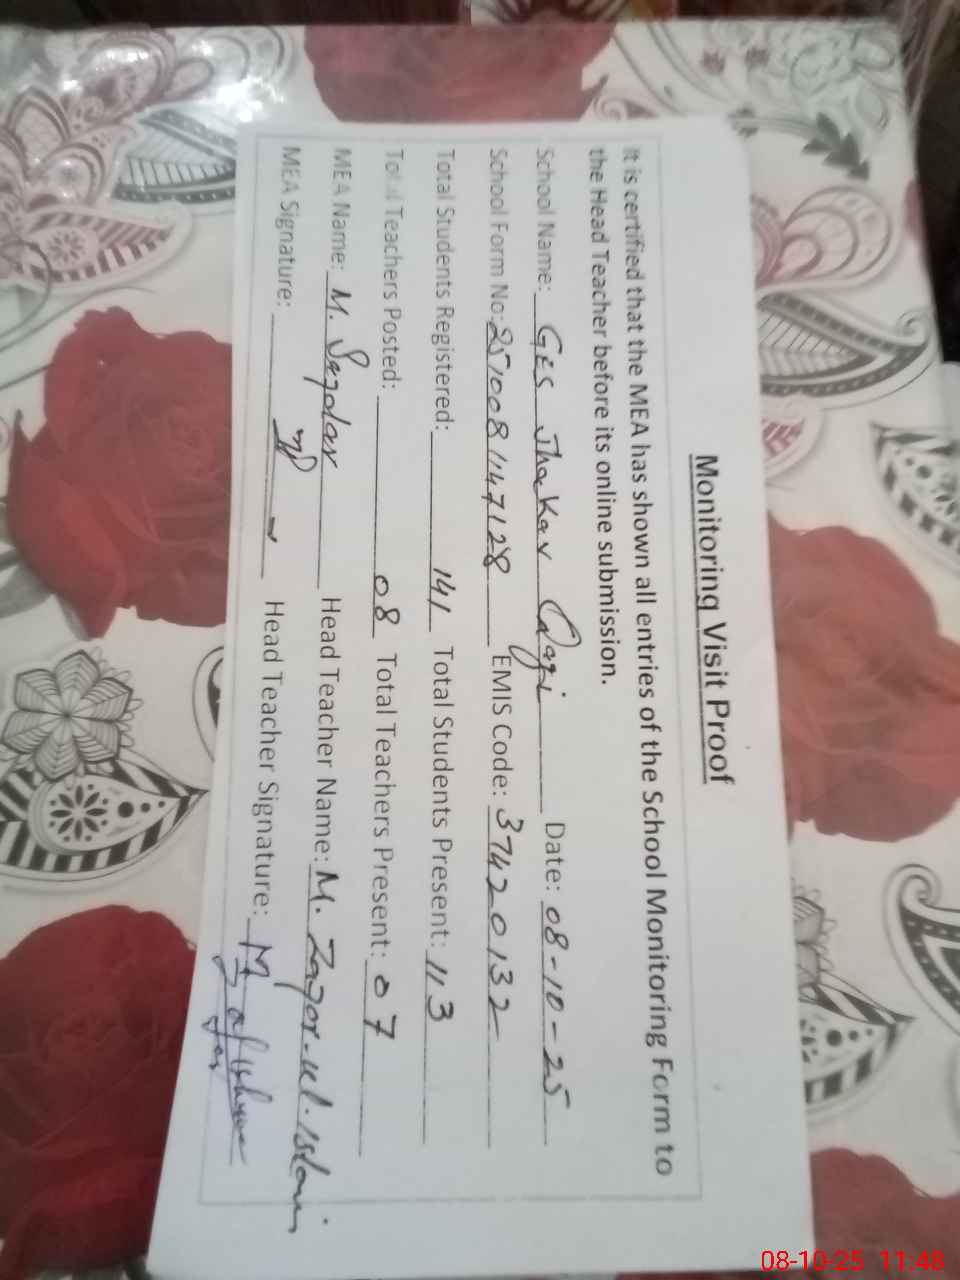 Monitoring Visit Proof
It is certified that the MEA has shown all entries of the School Monitoring Form to
the Head Teacher before its online submission.
School Name: GES Jhakar Qazi Date: 08-10-25
School Form No: 251008 1147128 EMIS Code: 37420132
Total Students Registered: 141 Total Students Present: 113
Total Teachers Posted: 08 Total Teachers Present: 07
MEA Name: M. Head Teacher Name: M.
MEA Signature: Head Teacher Signature:
08-10-25 11:48